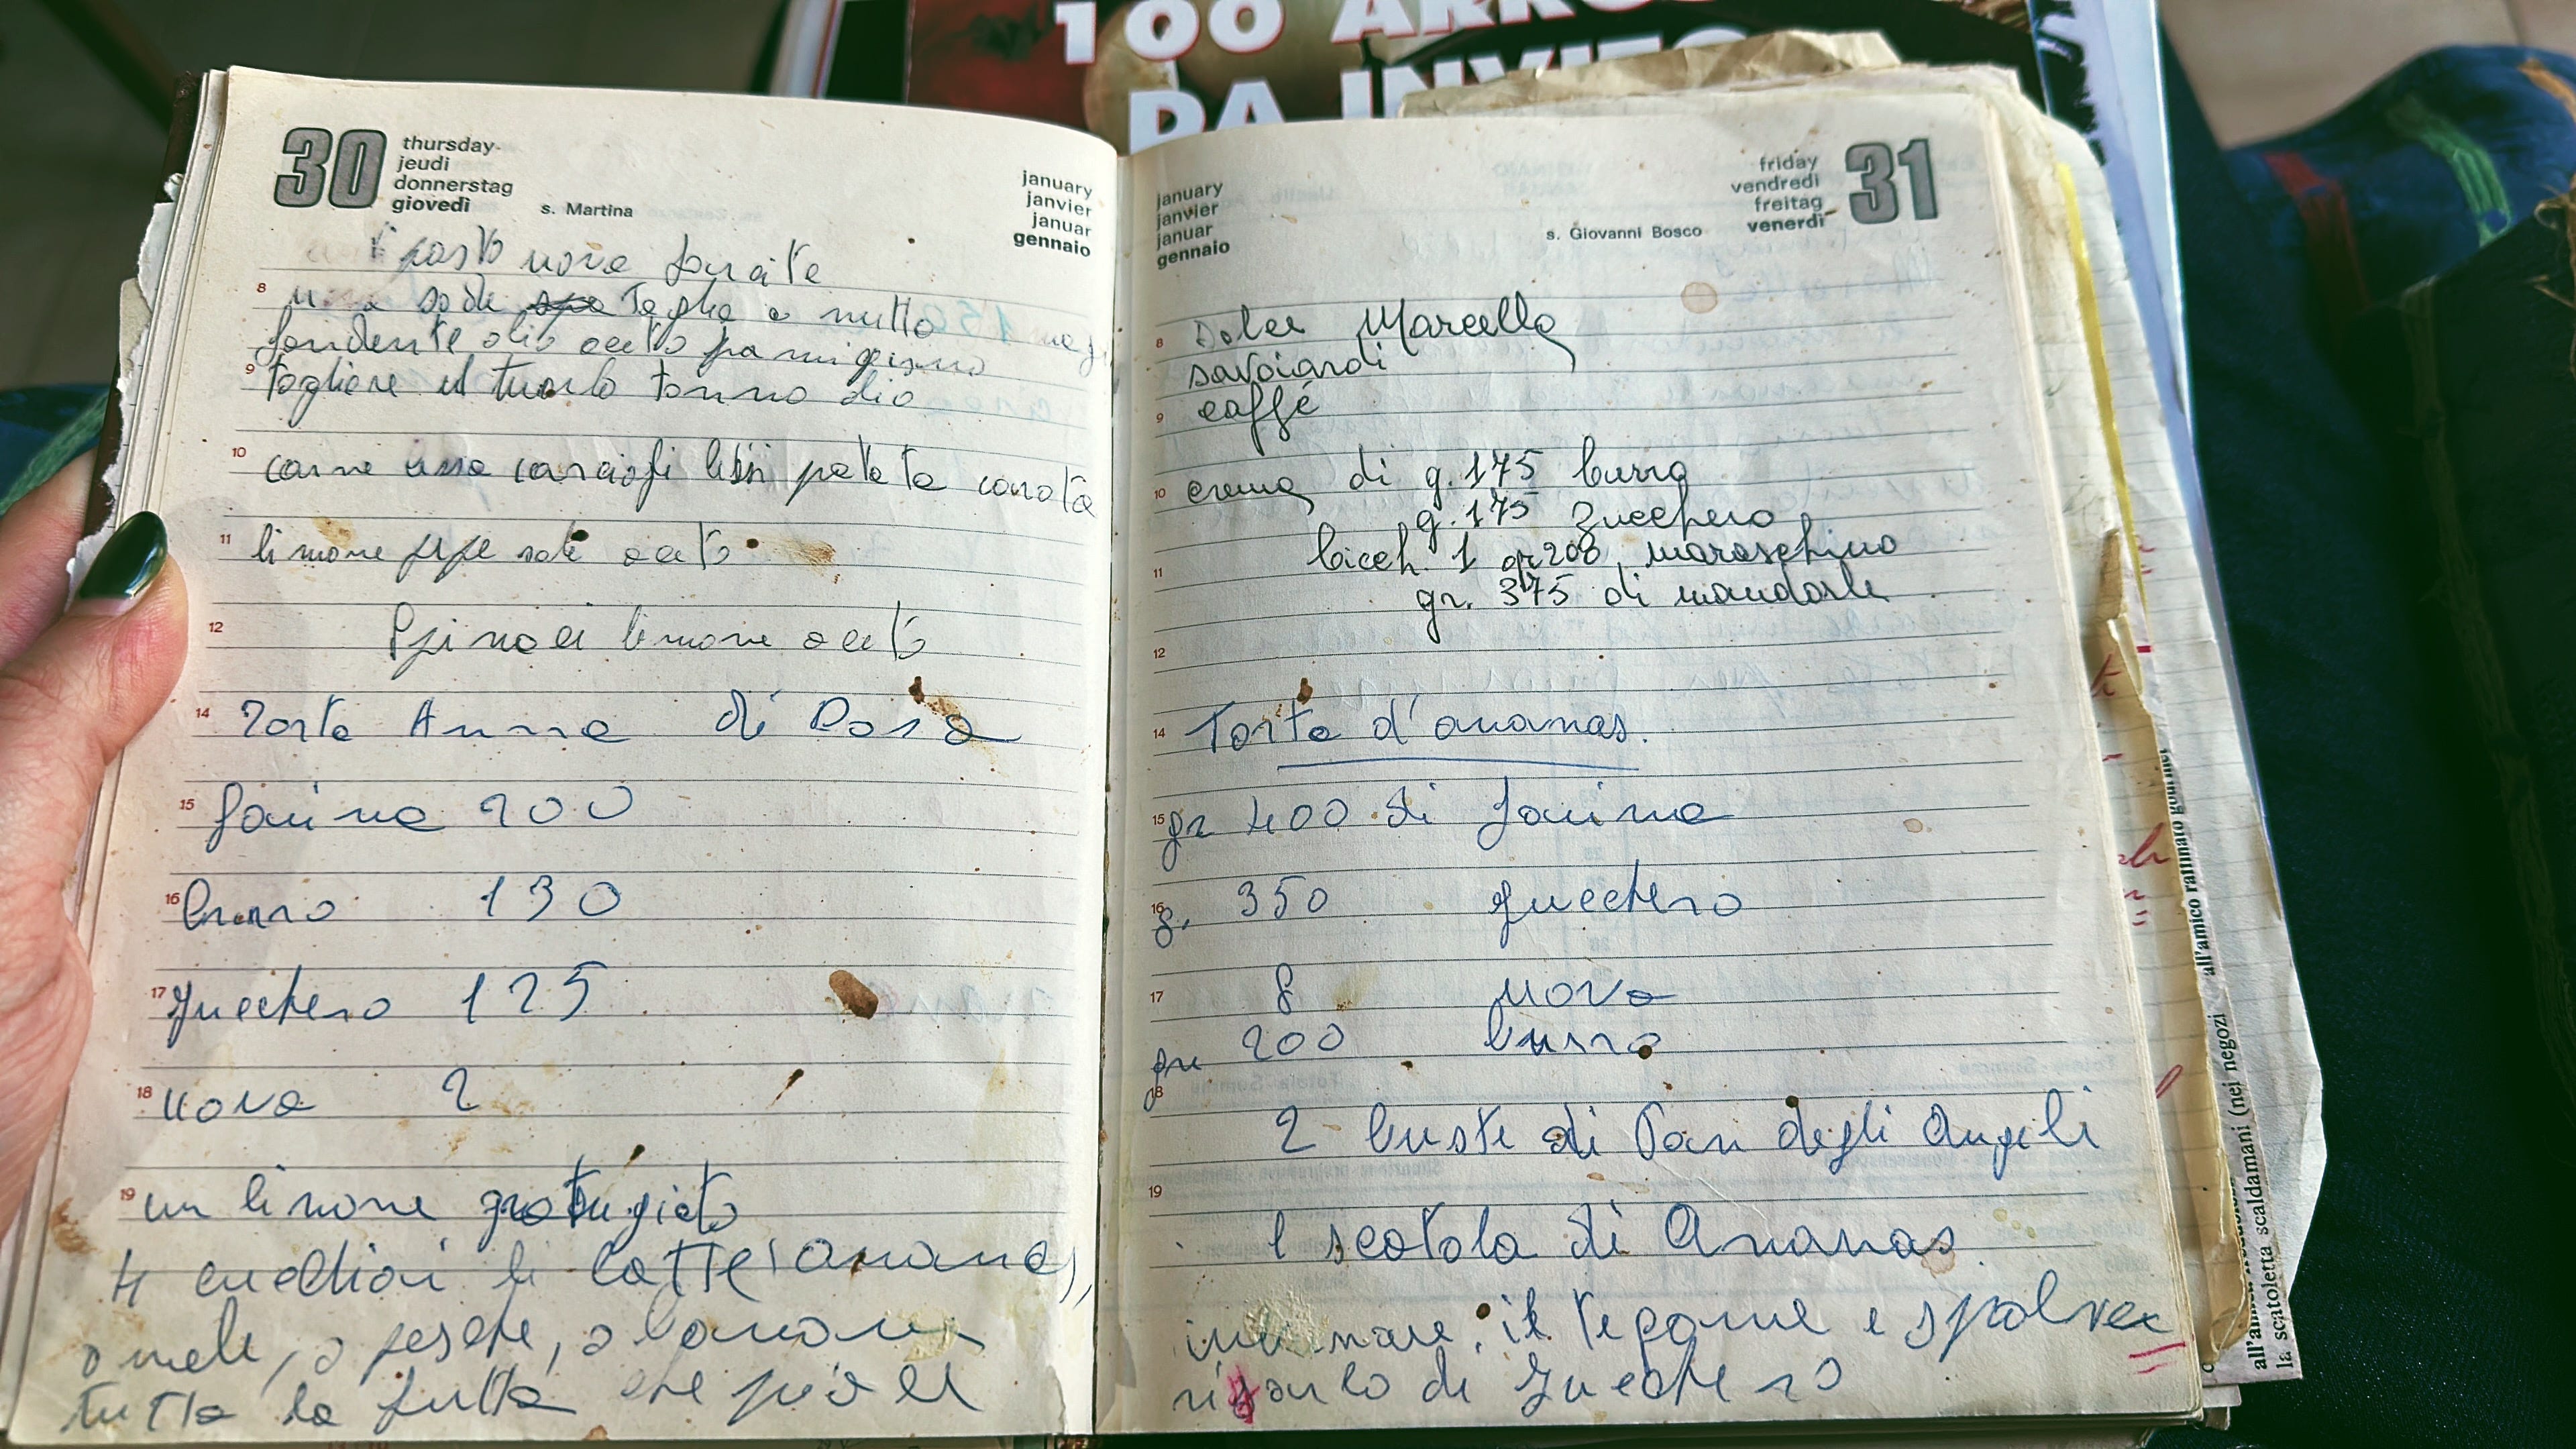 100 ARRO
DA INVITO
30
thursday
jeudi
donnerstag
giovedì
s. Martina
january
janvier
januar
gennaio
pasto uova farcite
8
sode taglia a metto
fondente olio aceto parmigiano
9
togliere il tuorlo tonno olio
10
carne carciofi patata carota
11
limone pepe sale aceto
12
Spinaci limone aceto
14 Torta Anna di Rosa
15 farina 200
16 burro 130
17 zucchero 125
18 uova 2
19 un limone grattugiato
4 cucchiai di latte (ananas),
o mele, o pesche, o banane
tutta la frutta che piace
january
janvier
januar
gennaio
friday
vendredi
freitag
venerdì
31
s. Giovanni Bosco
8 dolce Marcello
savoiardi
9 caffé
10 crema di g. 175 burro
g. 175 zucchero
11 bicch. 1 gr 200 maraschino
gr. 375 di mandorle
12
14 Torta d'ananas.
15 gr 400 di farina
16 g. 350 zucchero
17 8 uova
gr 200 burro
18
2 buste di Pan degli Angeli
19
1 scatola di Ananas
il tegame e spolve
di zucchero
all'amico raffinato gourmet
la scatoletta scaldamani (nei negozi